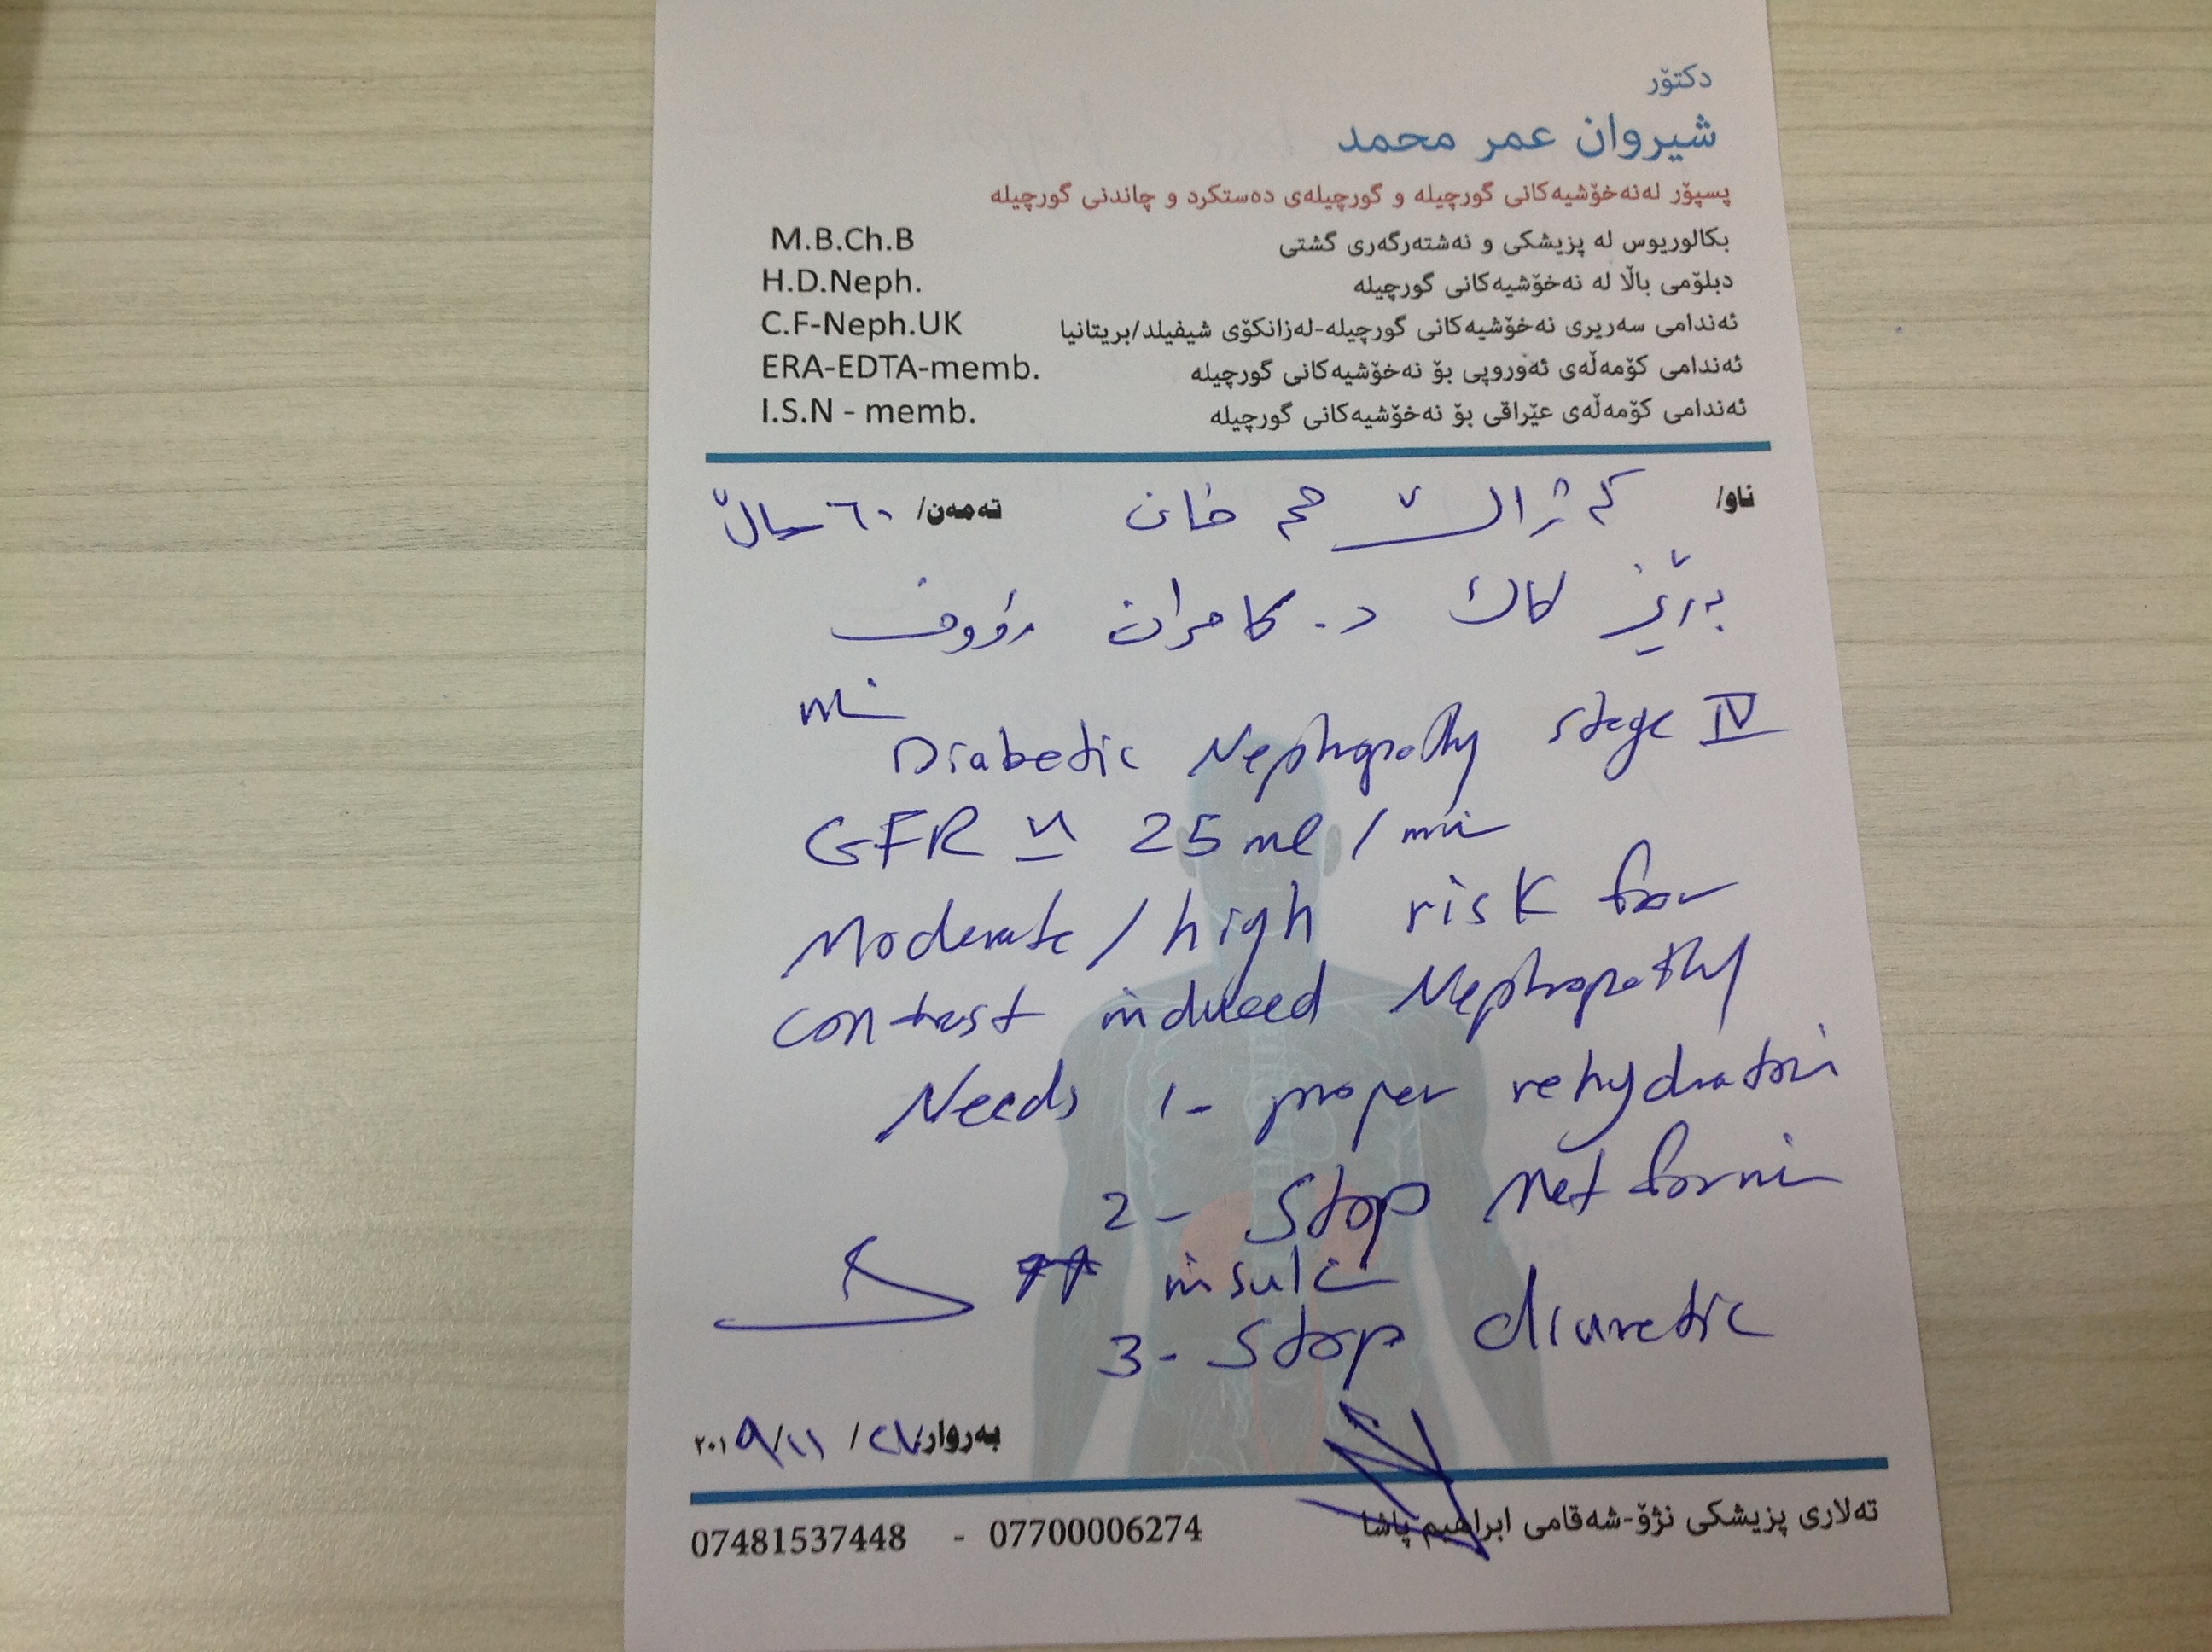 دکتۆر
شیروان عمر محمد
پسپۆر لەنەخۆشیەکانی گورچیلە و گورچیلەی دەستکرد و چاندنی گورچیلە
بکالوریوس لە پزیشکی و نەشتەرگەری گشتی M.B.Ch.B
دبلۆمی باڵا لە نەخۆشیەکانی گورچیلە H.D.Neph.
ئەندامی سەریری نەخۆشیەکانی گورچیلە-لەزانکۆی شیفیلد/بریتانیا C.F-Neph.UK
ئەندامی کۆمەڵەی ئەوروپی بۆ نەخۆشیەکانی گورچیلە ERA-EDTA-memb.
ئەندامی کۆمەڵەی عێراقی بۆ نەخۆشیەکانی گورچیلە I.S.N - memb.
ناو/ کەژاڵ حمە خان تەمەن/ ٦٠ ساڵ
بەڕێز کاک د. کامران رؤوف
Diabetic Nephropathy stage IV
GFR ≃ 25 ml / min
Moderate / high risk for
contrast induced Nephropathy
Needs 1- proper rehydration
2- Stop Metformin
insulin
3- Stop diuretic
بەروار ٢٧/ ١١/ ٢٠١٩
تەلاری پزیشکی نژۆ-شەقامی ابراهیم پاشا 07700006274 - 07481537448